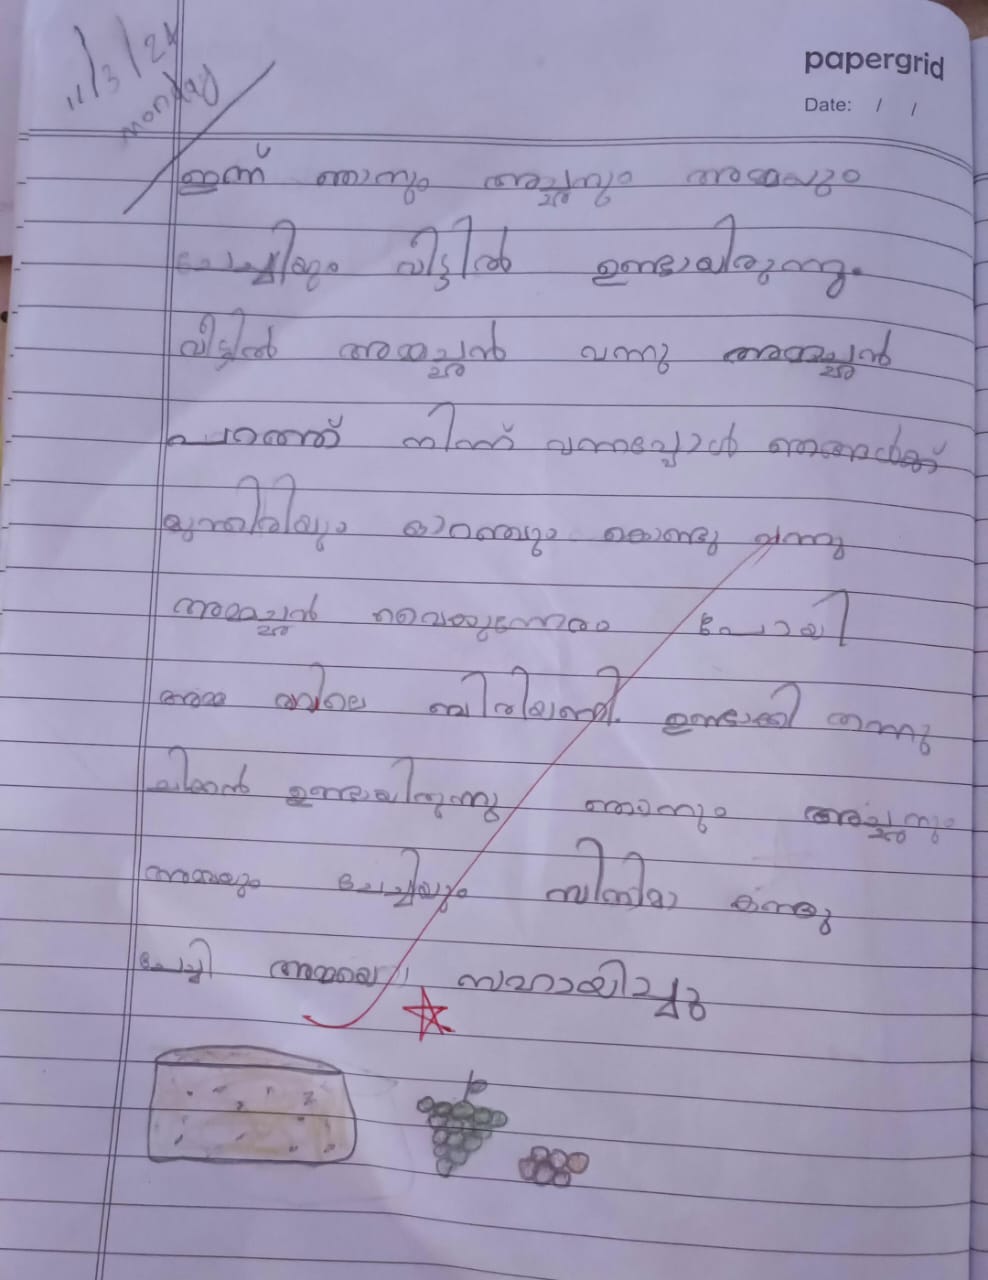 papergrid
Date: / /
11/3/24
monday
ഇന്ന് ഞാനും അച്ഛനും അമ്മയും
ചേച്ചിയും വീട്ടിൽ ഉണ്ടായിരുന്നു.
വീട്ടിൽ അമ്മച്ഛൻ വന്നു അമ്മച്ഛൻ
പറഞ്ഞത് നിന്ന് വന്നപ്പോൾ ഞങ്ങൾക്ക്
മുന്തിരിയും ഓറഞ്ചും കൊണ്ടു വന്നു
അമ്മച്ഛൻ വൈയുന്നേരം പോയി
അമ്മ ബിരിയാണി ഉണ്ടാക്കി തന്നു
ചിക്കൻ ഉണ്ടായിരുന്നു ഞാനും അച്ഛനും
അമ്മയും ചേച്ചിയും സിനിമാ കണ്ടു
ചേച്ചി അമ്മയെ സഹായിച്ചു